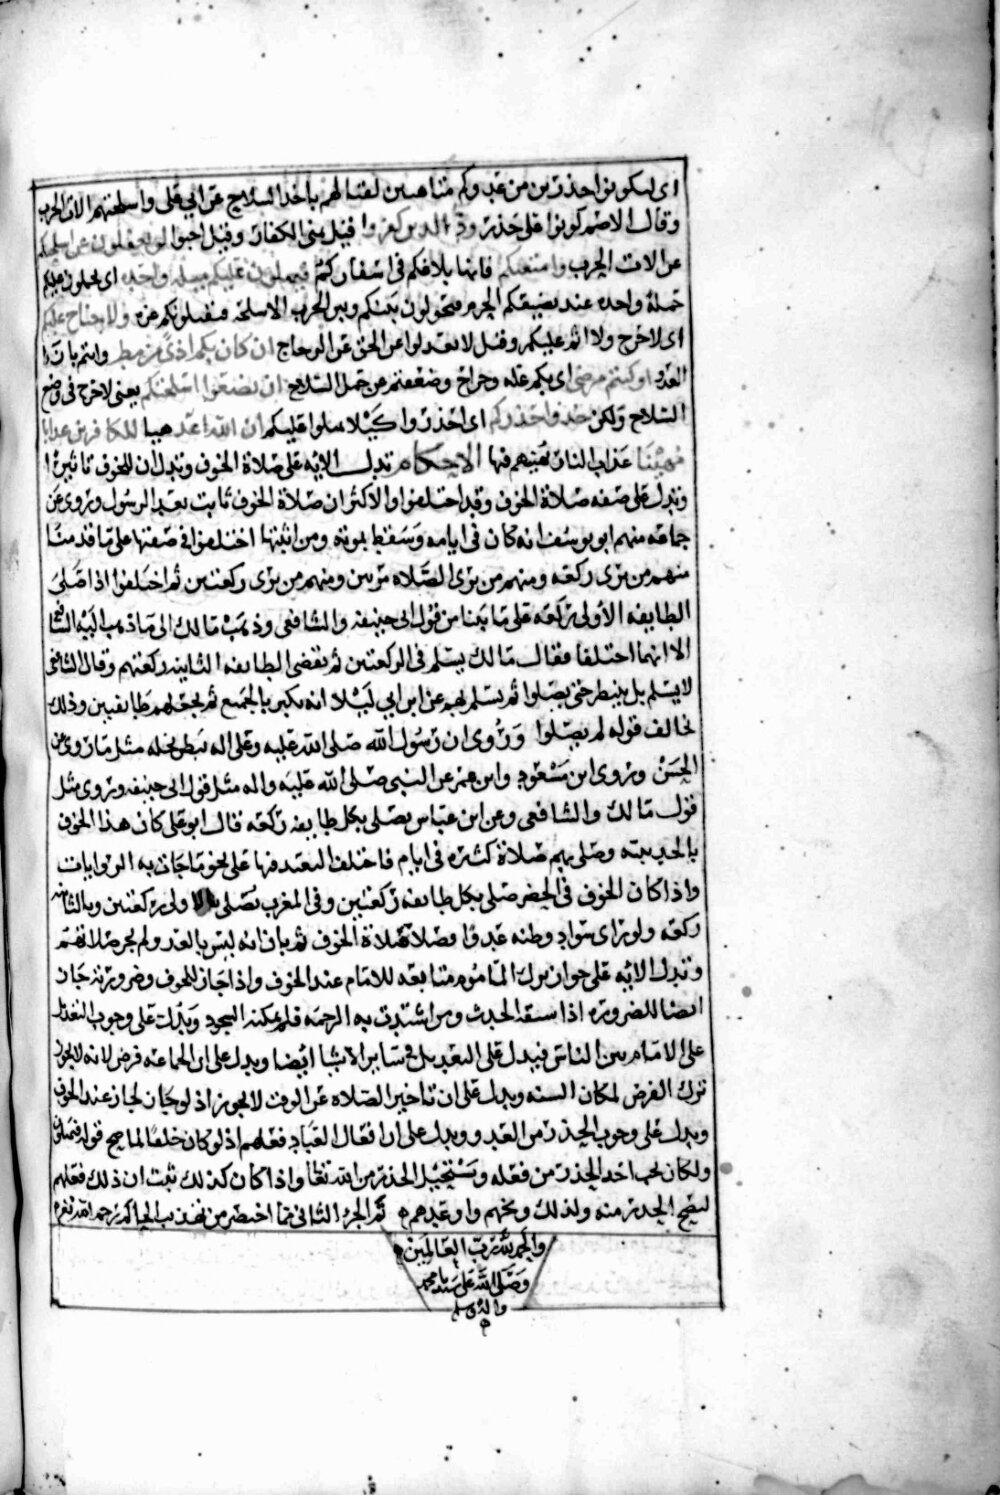 اى ليكونوا حذرين من عدوكم متاهبين لقتالهم باخذ السلاح عن ابي على واسلحتهم الات الحرب
وقال الاصم كونوا على حذر ود الذين كفروا قيل يتمنى الكفار وقيل احبوا لو تغفلون عن اسلحتكم
عن الات الحرب وامتعتكم فانها بلاغكم فى اسفاركم فيميلون عليكم ميلة واحده اى يحملون عليكم
حملة واحده عند تضييقكم الحزم فتحولون بينكم وبين الحرب الاسلحه فيقتلونكم عن ولا جناح عليكم
اى لا حرج ولا اثم عليكم وقيل لا تعدلوا عن الحق عن الزجاج ان كان بكم اذى من مطر وانتم بازا
العدو او كنتم مرضى اى بكم عله وجراح وضعفتم عن حمل السلاح ان تضعوا اسلحتكم يعنى لا حرج فى وضع
السلاح ولكن خذوا حذركم اى احذروا كيلا يميلوا عليكم ان الله اعد هيا للكافرين عذابا
مهينا عذاب النار يهينهم فيها الاحكام تدل الايه على صلاة الخوف وتدل ان للخوف تاثيرا
وتدل على صفه صلاة الخوف وقد اختلفوا والاكثر ان صلاة الخوف ثابت بعد الرسول وروى عن
جماعه منهم ابو يوسف انه كان فى ايامه وسقط بموته ومن اثبتها اختلفوا فى صفتها على ما قدمنا
منهم من يرى ركعه ومنهم من يرى الصلاه مرتين ومنهم من يرى ركعتين ثم اختلفوا اذا صلى
الطايفه الاولى ركعه على ما بينا من قول ابى حنيفه والشافعى وذهب مالك الى ما ذهب اليه الشافعى
الا انهما اختلفا فقال مالك يسلم فى الركعتين ثم تقضى الطايفه الثانيه ركعتهم وقال الشافعى
لا يسلم بل ينتظر حتى يصلوا ثم يسلم بهم عن ابن ابى ليلا انه يكبر بالجميع ثم يجعلهم طايفتين وذلك
يخالف قوله لم يصلوا وروى ان رسول الله صلى الله عليه وعلى اله ببطن نخله مثل ما روى عن
الحسن وروى ابن مسعود وابن عمر عن النبى صلى الله عليه واله مثل قول ابى حنيفه وروى مثل
قول مالك والشافعى وعن ابن عباس يصلى بكل طايفه ركعه قال ابو على كان هذا الخوف
بالحديبيه وصلى بهم صلاة كثيره فى ايام فاختلف التعبد فيها على نحو ما جات به الروايات
واذا كان الخوف فى الحضر صلى بكل طايفه ركعتين وفى المغرب يصلى بالاولى ركعتين وبالثانيه
ركعه ولو راى سواد وظنه عدوا وصلا صلاة الخوف ثم بان انه ليس بالعدو لم يجز صلاتهم
وتدل الايه على جواز ترك الماموم متابعه للامام عند الخوف واذا جاز للخوف وضرورته جاز
ايضا للضروره اذا سبقه الحدث ومن اشتدت به الزحمه فلم يمكنه السجود ويدل على وجوب التعديل
على الامام بين الناس فيدل على التعديل فى ساير الاشيا ايضا ويدل على ان الجماعه فرض لانه لا يجوز
ترك الفرض لمكان السنه ويدل على ان تاخير الصلاه عن الوقت لا يجوز اذ لو جاز لجاز عند الخوف
ويدل على وجوب الحذر من العدو ويدل على ان افعال العباد فعلهم اذ لو كان خلقا لما صح قوله
ولكان يجب اخذ الحذر من فعله ويستحيل الحذر من الله تعالى واذا كان كذلك ثبت ان ذلك فعلهم
ليصح الحذر منه ولذلك وبخهم واوعدهم تم الجزء الثانى مما اختصر من تهذيب الحاكم رحمه الله
والحمد لله رب العالمين
وصلى الله على سيدنا محمد
واله وسلم